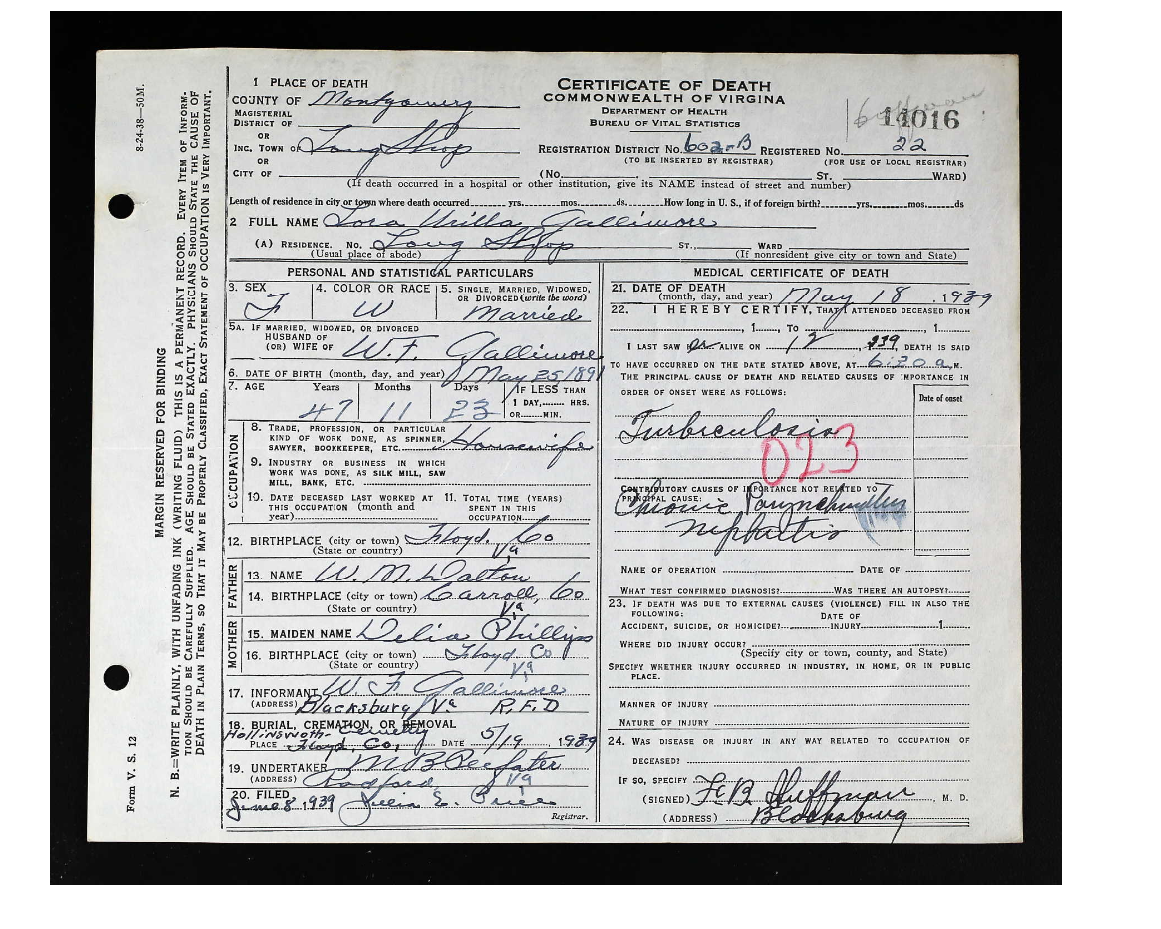 8-24-38—50M.
MARGIN RESERVED FOR BINDING
N. B.—WRITE PLAINLY, WITH UNFADING INK (WRITING FLUID) THIS IS A PERMANENT RECORD. EVERY ITEM OF INFORMATION SHOULD BE CAREFULLY SUPPLIED. AGE SHOULD BE STATED EXACTLY. PHYSICIANS SHOULD STATE THE CAUSE OF DEATH IN PLAIN TERMS, SO THAT IT MAY BE PROPERLY CLASSIFIED. EXACT STATEMENT OF OCCUPATION IS VERY IMPORTANT.
Form V. S. 12
CERTIFICATE OF DEATH
COMMONWEALTH OF VIRGINIA
DEPARTMENT OF HEALTH
BUREAU OF VITAL STATISTICS
14016
1 PLACE OF DEATH
COUNTY OF Montgomery
MAGISTERIAL
DISTRICT OF
OR
INC. TOWN OF Long Shop
OR
CITY OF
REGISTRATION DISTRICT No. 602-B REGISTERED No. 22
(TO BE INSERTED BY REGISTRAR) (FOR USE OF LOCAL REGISTRAR)
(No. ST. WARD)
(If death occurred in a hospital or other institution, give its NAME instead of street and number)
Length of residence in city or town where death occurred yrs. mos. ds. How long in U. S., if of foreign birth? yrs. mos. ds
2 FULL NAME Lora Urilla Gallimore
(A) RESIDENCE. No. Long Shop ST., WARD
(Usual place of abode) (If nonresident give city or town and State)
PERSONAL AND STATISTICAL PARTICULARS
3. SEX F
4. COLOR OR RACE W
5. SINGLE, MARRIED, WIDOWED, OR DIVORCED (write the word) Married
5A. IF MARRIED, WIDOWED, OR DIVORCED
HUSBAND OF
(OR) WIFE OF W.F. Gallimore
6. DATE OF BIRTH (month, day, and year) May 25 1891
7. AGE Years Months Days IF LESS THAN
1 DAY, HRS.
47 11 23 OR MIN.
OCCUPATION
8. TRADE, PROFESSION, OR PARTICULAR
KIND OF WORK DONE, AS SPINNER,
SAWYER, BOOKEEPER, ETC. Housewife
9. INDUSTRY OR BUSINESS IN WHICH
WORK WAS DONE, AS SILK MILL, SAW
MILL, BANK, ETC.
10. DATE DECEASED LAST WORKED AT THIS OCCUPATION (month and year)
11. TOTAL TIME (YEARS) SPENT IN THIS OCCUPATION
12. BIRTHPLACE (city or town) Floyd. Co
(State or country) Va
FATHER
13. NAME W. M. Dalton
14. BIRTHPLACE (city or town) Carroll, Co
(State or country) Va
MOTHER
15. MAIDEN NAME Delia Phillips
16. BIRTHPLACE (city or town) Floyd Co
(State or country) Va
17. INFORMANT W F Gallimore
(ADDRESS) Blacksburg, Va R.F.D
18. BURIAL, CREMATION, OR REMOVAL
Hollinsworth Cemetery
PLACE Floyd, Co, DATE 5/19, 1939
19. UNDERTAKER
(ADDRESS) Radford, Va
20. FILED
June 8, 1939 Julia E. Price
Registrar.
MEDICAL CERTIFICATE OF DEATH
21. DATE OF DEATH
(month, day, and year) May 18, 1939
22. I HEREBY CERTIFY, THAT I ATTENDED DECEASED FROM
, 1 , TO , 1
I LAST SAW Her ALIVE ON 12, 39 DEATH IS SAID
TO HAVE OCCURRED ON THE DATE STATED ABOVE, AT 6:20 a. M.
THE PRINCIPAL CAUSE OF DEATH AND RELATED CAUSES OF IMPORTANCE IN
ORDER OF ONSET WERE AS FOLLOWS:
Date of onset
Turbiculosis
023
CONTRIBUTORY CAUSES OF IMPORTANCE NOT RELATED TO
PRINCIPAL CAUSE:
Chronic
Nephritis
NAME OF OPERATION DATE OF
WHAT TEST CONFIRMED DIAGNOSIS? WAS THERE AN AUTOPSY?
23. IF DEATH WAS DUE TO EXTERNAL CAUSES (VIOLENCE) FILL IN ALSO THE
FOLLOWING:
DATE OF
ACCIDENT, SUICIDE, OR HOMICIDE? INJURY 1
WHERE DID INJURY OCCUR?
(Specify city or town, county, and State)
SPECIFY WHETHER INJURY OCCURRED IN INDUSTRY, IN HOME, OR IN PUBLIC
PLACE.
MANNER OF INJURY
NATURE OF INJURY
24. WAS DISEASE OR INJURY IN ANY WAY RELATED TO OCCUPATION OF
DECEASED?
IF SO, SPECIFY
(SIGNED) F. B. Huffman, M. D.
(ADDRESS) Blacksburg